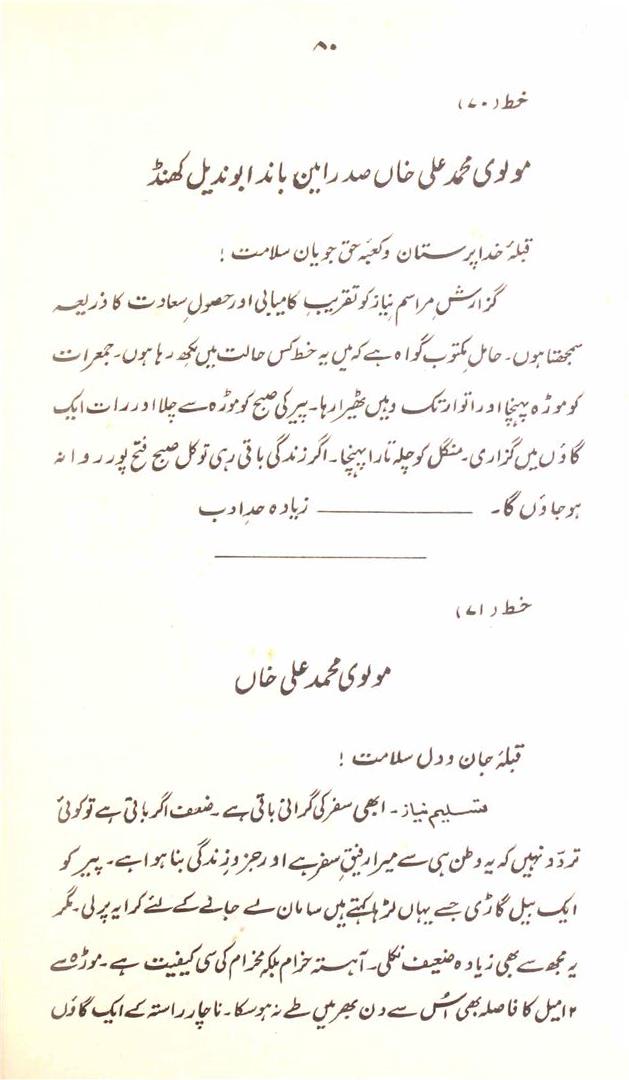 ۸۰
خط (۷۰)
مولوی محمد علی خاں صدر امین باندا بوندیل کھنڈ
قبلۂ خدا پرستان و کعبۂ حق جویان سلامت !
گزارشِ مراسم نیاز کو تقریبِ کامیابی اور حصولِ سعادت کا ذریعہ
سمجھتا ہوں۔ حاملِ مکتوب گواہ ہے کہ میں یہ خط کس حالت میں لکھ رہا ہوں۔ جمعرات
کو موڑہ پہنچا اور اتوار تک وہیں ٹھیرا رہا۔ پیر کی صبح کو موڑہ سے چلا اور رات ایک
گاؤں میں گزاری۔ منگل کو چلہ تارا پہنچا۔ اگر زندگی باقی رہی تو کل صبح فتح پور روانہ
ہو جاؤں گا۔ ــــــــــــــــ زیادہ حدِ ادب
خط (۷۱)
مولوی محمد علی خاں
قبلۂ جان و دل سلامت !
تسلیم نیاز۔ ابھی سفر کی گرانی باقی ہے۔ ضعف اگر باقی ہے تو کوئی
تردّد نہیں کہ یہ وطن ہی سے میرا رفیقِ سفر ہے اور جزوِ زندگی بنا ہوا ہے۔ پیر کو
ایک بیل گاڑی جسے یہاں لڑھا کہتے ہیں سامان لے جانے کے لئے کرایہ پر لی۔ مگر
یہ مجھ سے بھی زیادہ ضعیف نکلی۔ آہستہ خرام بلکہ مخرام کی سی کیفیت ہے۔ موڑہ سے
۱۲ میل کا فاصلہ بھی اُس سے دن بھر میں طے نہ ہو سکا۔ ناچار راستہ کے ایک گاؤں